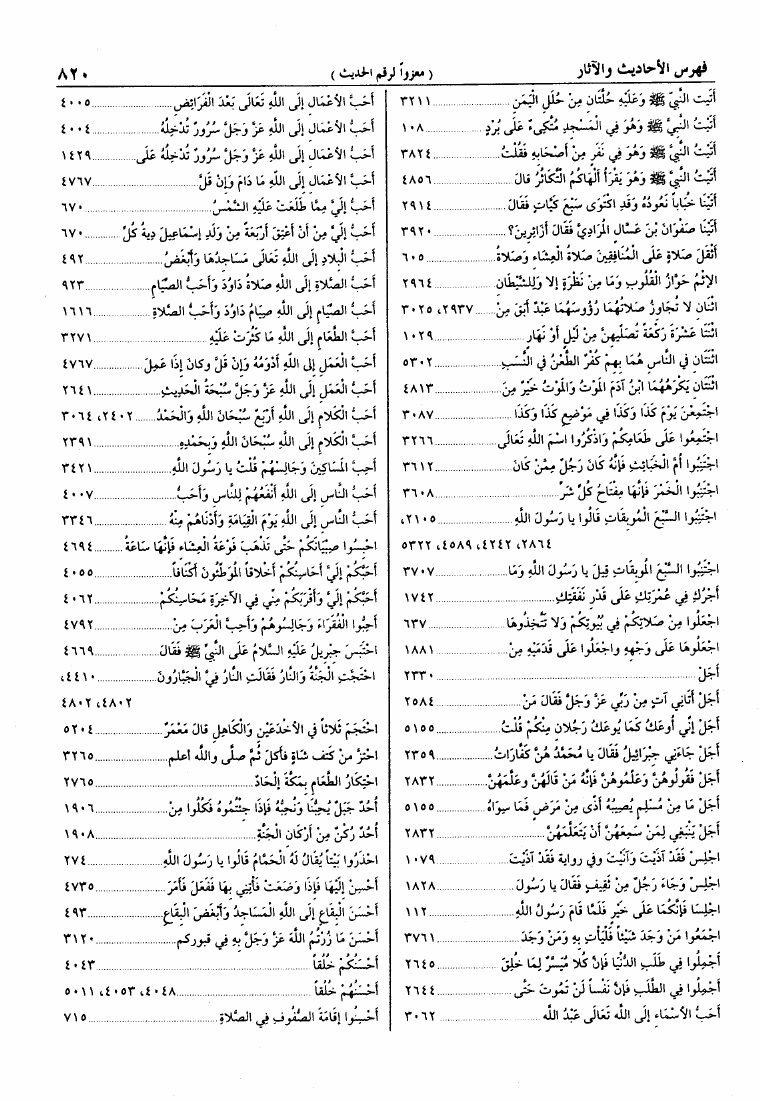 فهرس الأحاديث والآثار
( معزواً لرقم الحديث )
٨٢٠
أَتَيت النَّبِيَّ ﷺ وَعَلَيهِ حُلَّتَانِ مِنْ حُلَلِ الْيَمَنِ ... ٣٢١١
أَتَيْتُ النَّبِيَّ ﷺ وَهُوَ فِي الْمَسْجِدِ مُتَّكِىءٌ عَلَى بُرْدٍ ... ١٠٨
أَتَيْتُ النَّبِيَّ ﷺ وَهُوَ فِي نَفَرٍ مِنْ أَصْحَابِهِ فَقُلْتُ ... ٣٨٢٤
أَتَيْتُ النَّبِيَّ ﷺ وَهُوَ يَقْرَأُ أَلْهَاكُمُ التَّكَاثُرُ قالَ ... ٤٨٥٦
أَتَيْنَا خَبَّاباً نَعُودُهُ وَقَدِ اكْتَوَى سَبْعَ كَيَّاتٍ فَقَالَ ... ٢٩١٤
أَتَيْنَا صَفْوَانَ بْنَ عَسَّالٍ الْمُرَادِيَّ فَقَالَ أَزَائِرِينَ؟ ... ٣٩٢٠
أَثْقَلَ صَلاةٍ عَلَى الْمُنَافِقِينَ صَلاةُ الْعِشَاءِ وَصَلاةُ ... ٦٠٥
الإِثْمُ حَوَّازُ الْقُلُوبِ وَمَا مِنْ نَظْرَةٍ إلا وَلِلشَّيْطَانِ ... ٢٩٦٤
اثْنَانِ لا تُجَاوِزُ صَلاتُهُمَا رُؤُوسَهُمَا عَبْدٌ أَبَقَ مِنْ ... ٢٩٣٧، ٣٠٢٥
اثْنَتَا عَشْرَةَ رَكْعَةً تُصَلِّيهِنَّ مِنْ لَيْلٍ أَوْ نَهَارٍ ... ١٠٢٩
اثْنَتَانِ فِي النَّاسِ هُمَا بِهِمْ كُفْرٌ الطَّعْنُ فِي النَّسَبِ ... ٥٣٠٢
اثْنَتَانِ يَكْرَهُهُمَا ابْنُ آدَمَ الْمَوْتُ وَالْمَوْتُ خَيْرٌ مِنَ ... ٤٨١٣
اجْتَمِعْنَ يَوْمَ كَذَا وَكَذَا فِي مَوْضِعِ كَذَا وَكَذَا ... ٣٠٨٧
اجْتَمِعُوا عَلَى طَعَامِكُمْ وَاذْكُرُوا اسْمَ اللهِ تَعَالَى ... ٣٢٦٦
اجْتَنِبُوا أُمَّ الْخَبَائِثِ فَإِنَّهُ كَانَ رَجُلٌ مِمَّنْ كَانَ ... ٣٦١٢
اجْتَنِبُوا الْخَمْرَ فَإِنَّهَا مِفْتَاحُ كُلِّ شَرٍّ ... ٣٦٠٨
اجْتَنِبُوا السَّبْعَ الْمُوبِقَاتِ قَالُوا يا رَسُولَ اللهِ ... ٢١٠٥،
٢٨٦٤، ٤٢٤٢، ٤٥٨٩، ٥٣٢٢
اجْتَنِبُوا السَّبْعَ الْمُوبِقَاتِ قِيلَ يا رَسُولَ اللهِ وَمَا ... ٣٧٠٧
أَجْرُكِ فِي عُمْرَتِكِ عَلَى قَدْرِ نَفَقَتِكِ ... ١٧٤٢
اجْعَلُوا مِنْ صَلاتِكُمْ فِي بُيُوتِكُمْ وَلا تَتَّخِذُوهَا ... ٦٣٧
اجْعَلُوهَا عَلَى وَجْهِهِ وَاجْعَلُوا عَلَى قَدَمَيْهِ مِنْ ... ١٨٨١
أَجَلْ ... ٢٣٣٠
أَجَلْ أَتَانِي آتٍ مِنْ رَبِّي عَزَّ وَجَلَّ فَقَالَ مَنْ ... ٢٥٨٤
أَجَلْ إِنِّي أُوعَكُ كَمَا يُوعَكُ رَجُلانِ مِنْكُمْ قُلْتُ ... ٥١٥٥
أَجَلْ جَاءَنِي جِبْرَائِيلُ فَقَالَ يا مُحَمَّدُ هُنَّ كَفَّارَاتُ ... ٢٣٥٩
أَجَلْ فَقُولُوهُنَّ وَعَلِّمُوهُنَّ فَإِنَّهُ مَنْ قَالَهُنَّ وَعلَّمَهُنَّ ... ٢٨٣٢
أَجَلْ مَا مِنْ مُسْلِمٍ يُصِيبُهُ أَذًى مِنْ مَرَضٍ فَمَا سِوَاهُ ... ٥١٥٥
أَجَلْ يَنْبَغِي لِمَنْ سَمِعَهُنَّ أَنْ يَتَعَلَّمَهُنَّ ... ٢٨٣٢
اجْلِسْ فَقَدْ آذَيْتَ وَآنَيْتَ وفي رواية فَقَدْ آذَيْتَ ... ١٠٧٩
اجْلِسْ وَجَاءَ رَجُلٌ مِنْ ثَقِيفٍ فَقَالَ يا رَسُولَ ... ١٨٢٨
اجْلِسَا فَإِنَّكُمَا عَلَى خَيْرٍ فَلَمَّا قَامَ رَسُولُ اللهِ ... ١١٢
اجْمَعُوا مَنْ وَجَدَ شَيْئاً فَلْيَأْتِ بِهِ وَمَنْ وَجَدَ ... ٣٧٦١
أَجْمِلُوا فِي طَلَبِ الدُّنْيَا فَإِنَّ كُلا مُيَسَّرٌ لِمَا خُلِقَ ... ٢٦٤٥
أَجْمِلُوا فِي الطَّلَبِ فَإِنَّ نَفْساً لَنْ تَمُوتَ حَتَّى ... ٢٦٤٤
أَحَبُّ الأَسْمَاءِ إِلَى اللهِ تَعَالَى عَبْدُ اللهِ ... ٣٠٦٢
أَحَبُّ الأَعْمَالِ إِلَى اللهِ تَعَالَى بَعْدَ الْفَرَائِضِ ... ٤٠٠٥
أَحَبُّ الأَعْمَالِ إِلَى اللهِ عَزَّ وَجَلَّ سُرُورٌ تُدْخِلُهُ ... ٤٠٠٤
أَحَبُّ الأَعْمَالِ إِلَى اللهِ عَزَّ وَجَلَّ سُرُورٌ تُدْخِلُهُ عَلَى ... ١٤٢٩
أَحَبُّ الأَعْمَالِ إِلَى اللهِ مَا دَامَ وَإِنْ قَلَّ ... ٤٧٦٧
أَحَبُّ إِلَيَّ مِمَّا طَلَعَتْ عَلَيْهِ الشَّمْسُ ... ٦٧٠
أَحَبُّ إِلَيَّ مِنْ أَنْ أَعْتِقَ أَرْبَعَةً مِنْ وَلَدِ إِسْمَاعِيلَ دِيةُ كُلِّ ... ٦٧٠
أَحَبُّ الْبِلادِ إِلَى اللهِ تَعَالَى مَسَاجِدُهَا وَأَبْغَضُ ... ٤٩٢
أَحَبُّ الصَّلاةِ إِلَى اللهِ صَلاةُ دَاوُدَ وَأَحَبُّ الصِّيَامِ ... ٩٢٣
أَحَبُّ الصِّيَامِ إِلَى اللهِ صِيَامُ دَاوُدَ وَأَحَبُّ الصَّلاةِ ... ١٦١٦
أَحَبُّ الطَّعَامِ إِلَى اللهِ مَا كَثُرَتْ عَلَيْهِ ... ٣٢٧١
أَحَبُّ الْعَمَلِ إلى اللهِ أَدْوَمُهُ وَإِنْ قَلَّ وَكانَ إِذَا عَمِلَ ... ٤٧٦٧
أَحَبُّ الْعَمَلِ إِلَى اللهِ عَزَّ وَجَلَّ سُبْحَةُ الْحَدِيثِ ... ٢٦٤١
أَحَبُّ الْكَلامِ إِلَى اللهِ أَرْبَعٌ سُبْحَانَ اللهِ وَالْحَمْدُ ... ٢٤٠٢، ٣٠٦٤
أَحَبُّ الْكَلامِ إِلَى اللهِ سُبْحَانَ اللهِ وَبِحَمْدِهِ ... ٢٣٩١
أَحِبَّ الْمَسَاكِينَ وَجَالِسْهُمْ قُلْتُ يا رَسُولَ اللهِ ... ٣٤٢١
أَحَبُّ النَّاسِ إِلَى اللهِ أَنْفَعُهُمْ لِلنَّاسِ وَأَحَبُّ ... ٤٠٠٧
أَحَبُّ النَّاسِ إِلَى اللهِ يَوْمَ الْقِيَامَةِ وَأَدْنَاهُمْ مِنْهُ ... ٣٣٤٦
احْبِسُوا صِبْيَانَكُمْ حَتَّى تَذْهَبَ فَوْعَةُ الْعِشَاءِ فَإِنَّهَا سَاعَةُ ... ٤٦٩٤
أَحَبُّكُمْ إِلَيَّ أَحَاسِنُكُمْ أَخْلاقاً الْمُوَطَّئُونَ أَكْنَافاً ... ٤٠٥٥
أَحَبُّكُمْ إِلَيَّ وَأَقْرَبُكُمْ مِنِّي فِي الآخِرَةِ مَحَاسِنُكُمْ ... ٤٠٦٢
أَحِبُّوا الْفُقَرَاءَ وَجَالِسُوهُمْ وَأَحِبَّ الْعَرَبَ مِنْ ... ٤٧٩٢
احْتَبَسَ جِبْرِيلُ عَلَيْهِ السَّلامُ عَلَى النَّبِيِّ ﷺ فَقَالَ ... ٤٦٦٩
احْتَجَّتِ الْجَنَّةُ وَالنَّارُ فَقَالَتِ النَّارُ فِيَّ الْجَبَّارُونَ ... ٤٤١٠،
٤٨٠٢، ٤٨٠٢
احْتَجَمَ ثَلاثاً فِي الأَخْدَعَيْنِ وَالْكَاهِلِ قالَ مَعْمَرٌ ... ٥٢٠٤
احْتزَّ منْ كَتف شَاةٍ فأَكلَ ثُمَّ صلَّى والله أعلم ... ٣٢٦٥
احْتِكَارُ الطَّعَامِ بِمَكَّةَ إِلْحَادٌ ... ٢٧٦٥
أُحُدٌ جَبَلٌ يُحِبُّنَا وَنُحِبُّهُ فَإِذَا جِئْتُمُوهُ فَكُلُوا مِنْ ... ١٩٠٦
أُحُدٌ رُكْنٌ مِنْ أَرْكَانِ الْجَنَّةِ ... ١٩٠٨
احْذَرُوا بَيْتاً يُقَالُ لَهُ الْحَمَّامُ قَالُوا يا رَسُولَ اللهِ ... ٢٧٤
أَحْسِنْ إِلَيْهَا فَإِذَا وَضَعَتْ فَأْتِنِي بِهَا فَفَعَلَ فَأَمَرَ ... ٤٧٣٥
أَحْسَنَ الْبِقَاعِ إِلَى اللهِ الْمَسَاجِدُ وَأَبْغَضَ الْبِقَاعِ ... ٤٩٣
أَحْسَنَ مَا زُرْتُمُ اللهَ عَزَّ وَجَلَّ بِهِ في قبوركم ... ٣١٢٠
أَحْسَنُكُمْ خُلُقاً ... ٤٠٤٣
أَحْسَنُهُمْ خُلُقاً ... ٤٠٤٨، ٤٠٥٣، ٥٠١١
أَحْسِنُوا إِقَامَةَ الصُّفُوفِ فِي الصَّلاةِ ... ٧١٥